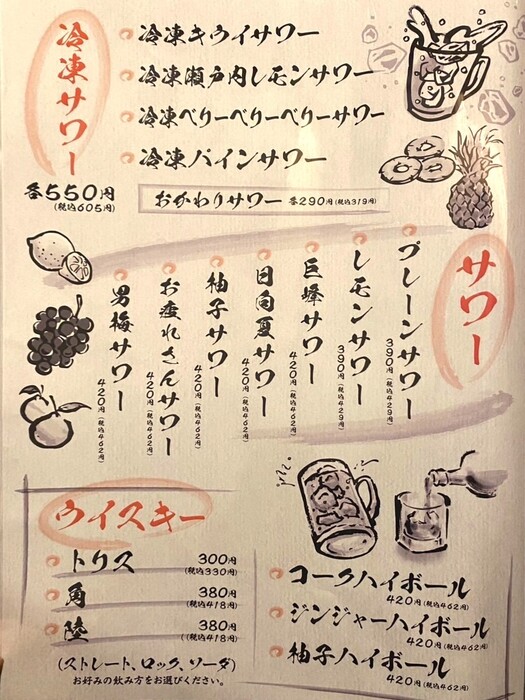 冷凍サワー
各550円
(税込605円)
冷凍キウイサワー
冷凍瀬戸内レモンサワー
冷凍ベリーベリーベリーサワー
冷凍パインサワー
おかわりサワー 各290円(税込319円)
サワー
プレーンサワー 390円(税込429円)
レモンサワー 390円(税込429円)
巨峰サワー 420円(税込462円)
日向夏サワー 420円(税込462円)
柚子サワー 420円(税込462円)
お疲れさんサワー 420円(税込462円)
男梅サワー 420円(税込462円)
ウイスキー
トリス 300円
(税込330円)
角 380円
(税込418円)
陸 380円
((税込418円)
(ストレート、ロック、ソーダ)
お好みの飲み方をお選びください。
コークハイボール
420円(税込462円)
ジンジャーハイボール
420円(税込462円)
柚子ハイボール
420円(税込462円)